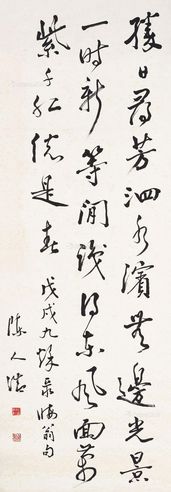 勝日尋芳泗水濱無邊光景
一時新等閒識得東風面萬
紫千紅總是春
戊戌九秋录晦翁句
陳人浩